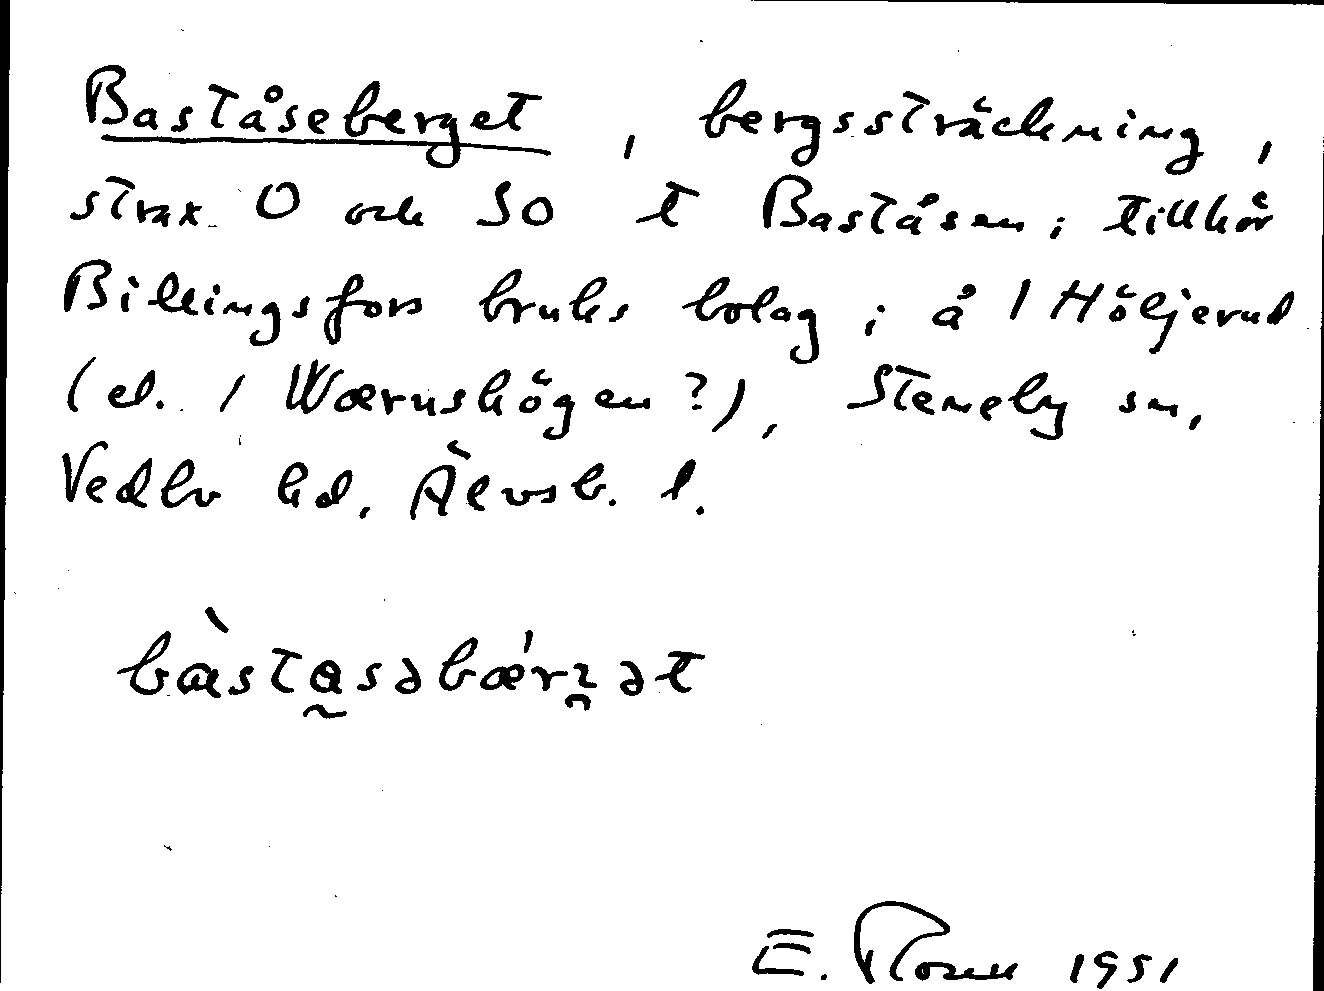 Baståseberget, bergssträckning,
strax O och SO t Baståsen; tillhör
Billingsfors bruks bolag; å 1 Höljerud
(el. 1 Wærnshögen?), Steneby sn,
Vedbo hd, Älvsb. l.
bàstasəbǽrʒət
E. 1951